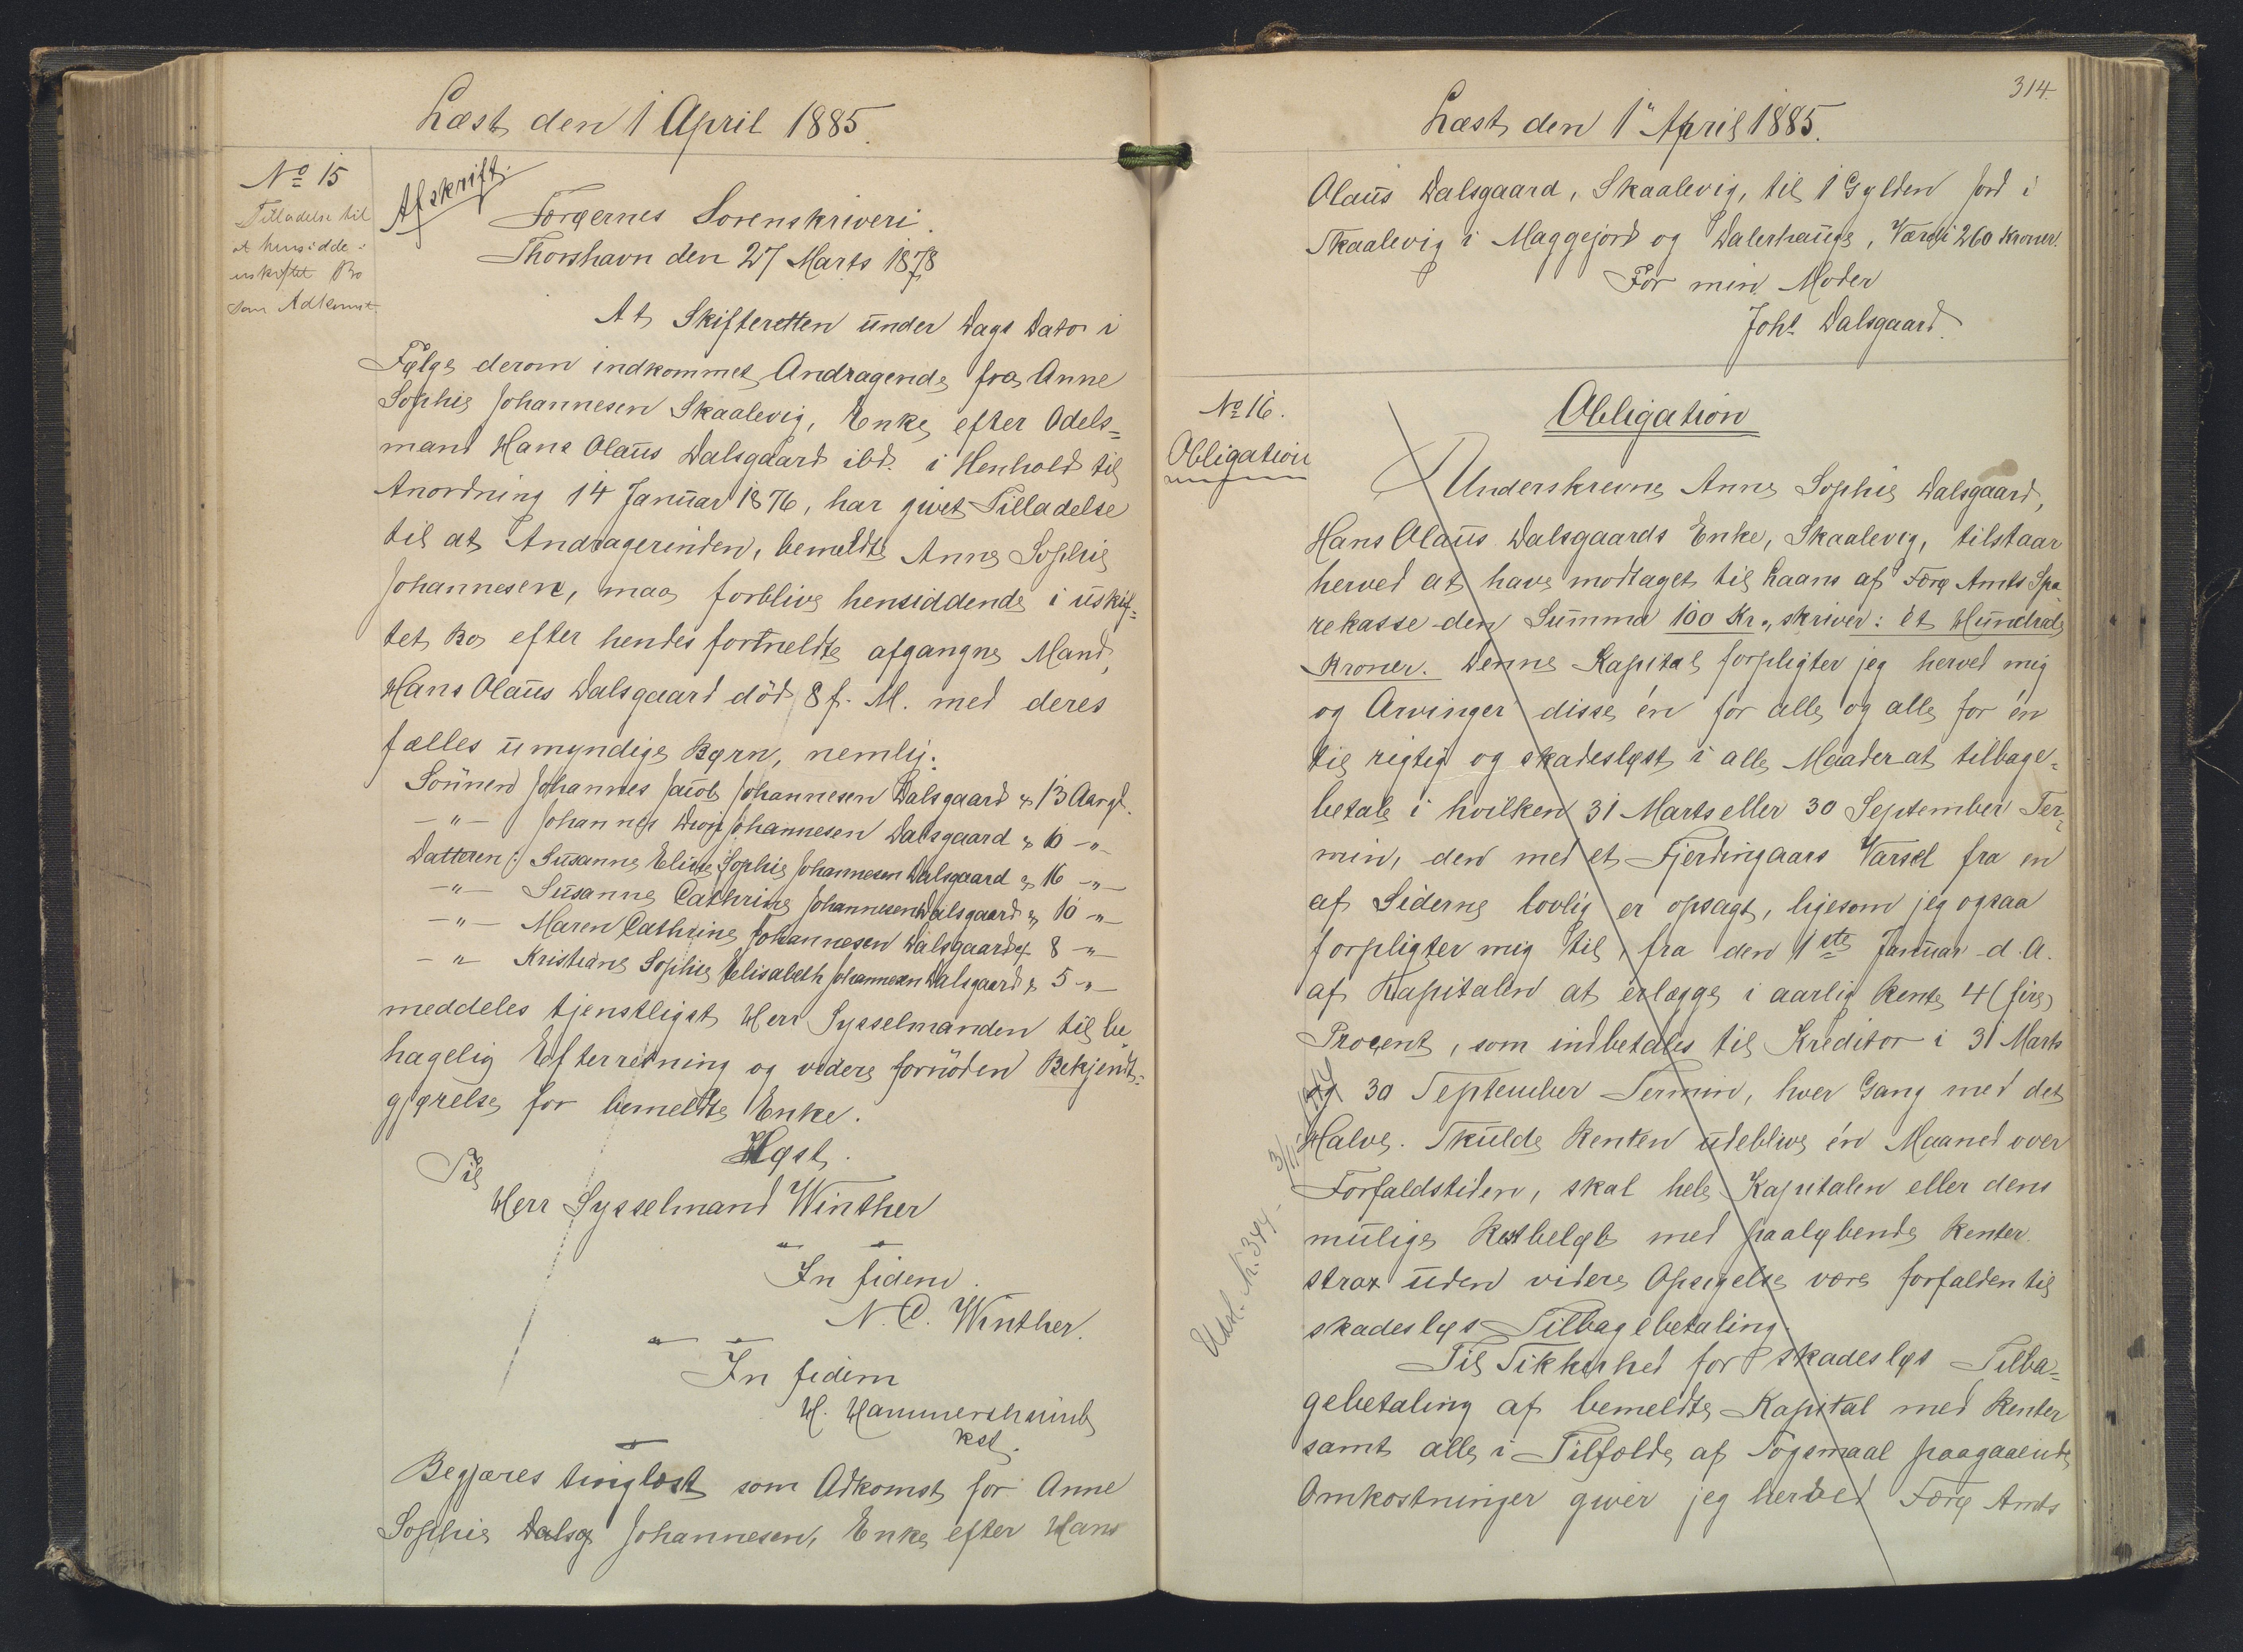 Læst den 1 April 1885.
No 15
Tilladelse til
at hensidde i
uskiftet Bo
som Adkomst
Afskrift.
Færøernes Sorenskriveri.
Thorshavn den 27 Marts 1878
At Skifteretten under Dags Dato i
Følge derom indkommet Andragende fra Anne
Sophie Johannesen Skaalevig, Enke efter Odels=
mand Hans Olaus Dalsgaard ibd. i Henhold til
Anordning 14 Januar 1876, har givet Tilladelse
til at Andragerinden, bemeldte Anne Sophie
Johannesen, maa forblive hensiddende i uskif=
tet Bo efter hendes formeldte afgangne Mand,
Hans Olaus Dalsgaard död 8 f. M. med deres
fælles umyndige Børn, nemlig:
Sönnen Johannes Jacob Johannesen Dalsgaard 13 Aargl.
-"- Johannes Johannesen Dalsgaard 10 -"-
Datteren: Susanne Elise Sophie Johannesen Dalsgaard 16 -"-
-"- Susanne Cathrine Johannesen Dalsgaard 10 -"-
-"- Maren Cathrine Johannesen Dalsgaard 8 -"-
-"- Kristiane Sophie Elisabeth Johannesen Dalsgaard 5 -"-
meddeles tjenstligst Herr Sysselmanden til be
hagelig Efterretning og videre fornöden Bekjendt=
gjørelse for bemeldte Enke.
Høst.
Til
Herr Sysselmand Winther
In fidem
N. C. Winther.
In fidem
H. Hammershaimb
kst.
Begjæres tinglæst som Adkomst for Anne
Sophie Dalsg Johannesen, Enke efter Hans
314.
Læst den 1 April 1885.
Olaus Dalsgaard, Skaalevig, til 1 Gylden Jord i
Skaalevig i Maggejord og Dalerhauge, Værdi 260 Kroner.
For min Moder
Johs Dalsgaard.
No 16.
Obligation
Obligation
Underskrevne Anne Sophie Dalsgaard,
Hans Olaus Dalsgaards Enke, Skaalevig, tilstaar
herved at have modtaget til Laans af Færø Amts Spa
rekasse den Summa 100 Kr., skriver: et Hundrede
Kroner. Denne Kapital forpligter jeg herved mig
og Arvinger disse én for alle og alle for én
til rigtig og skadesløst i alle Maader at tilbage=
betale i hvilken 31 Marts eller 30 September Ter=
min, den med et Fjerdingaars Varsel fra en
af Siderne lovlig er opsagt, ligesom jeg ogsaa
forpligter mig til, fra den 1ste Januar d. A.
af Kapitalen at erlægge i aarlig Rente 4 (fire)
Procent, som indbetales til Kreditor i 31 Marts
og 30 September Termin, hver Gang med det
Halve. Skulde Renten udeblive én Maaned over
Forfaldstiden, skal hele Kapitalen eller dens
mulige Restbeløb med paaløbende Renter
strax uden videre Opsigelse være forfalden til
skadesløs Tilbagebetaling.
Til Sikkerhed for skadesløs Tilba=
gebetaling af bemeldte Kapital med Renter
samt alle i Tilfælde af Sögsmaal paagaaende
Omkostninger giver jeg herved Færø Amts
Udsl. N. 344.